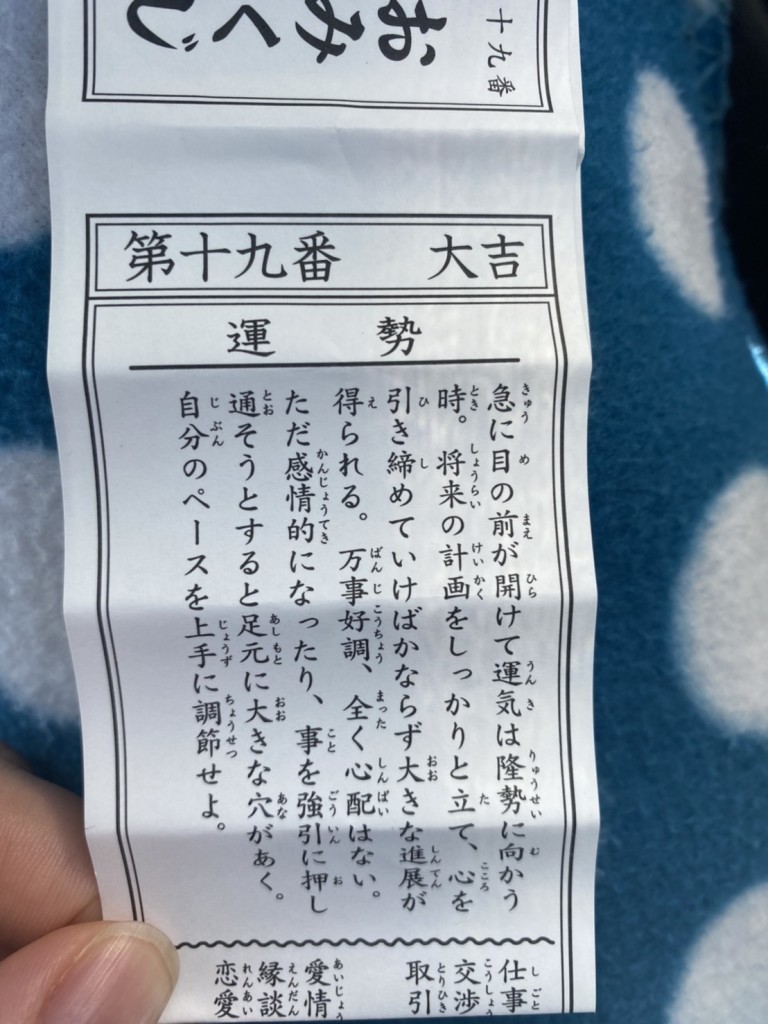 十九番
おみくじ
第十九番 大吉
運勢
急に目の前が開けて運気は隆勢に向かう
時。将来の計画をしっかりと立て、心を
引き締めていけばかならず大きな進展が
得られる。万事好調、全く心配はない。
ただ感情的になったり、事を強引に押し
通そうとすると足元に大きな穴があく。
自分のペースを上手に調節せよ。
仕事
交渉
取引
愛情
縁談
恋愛